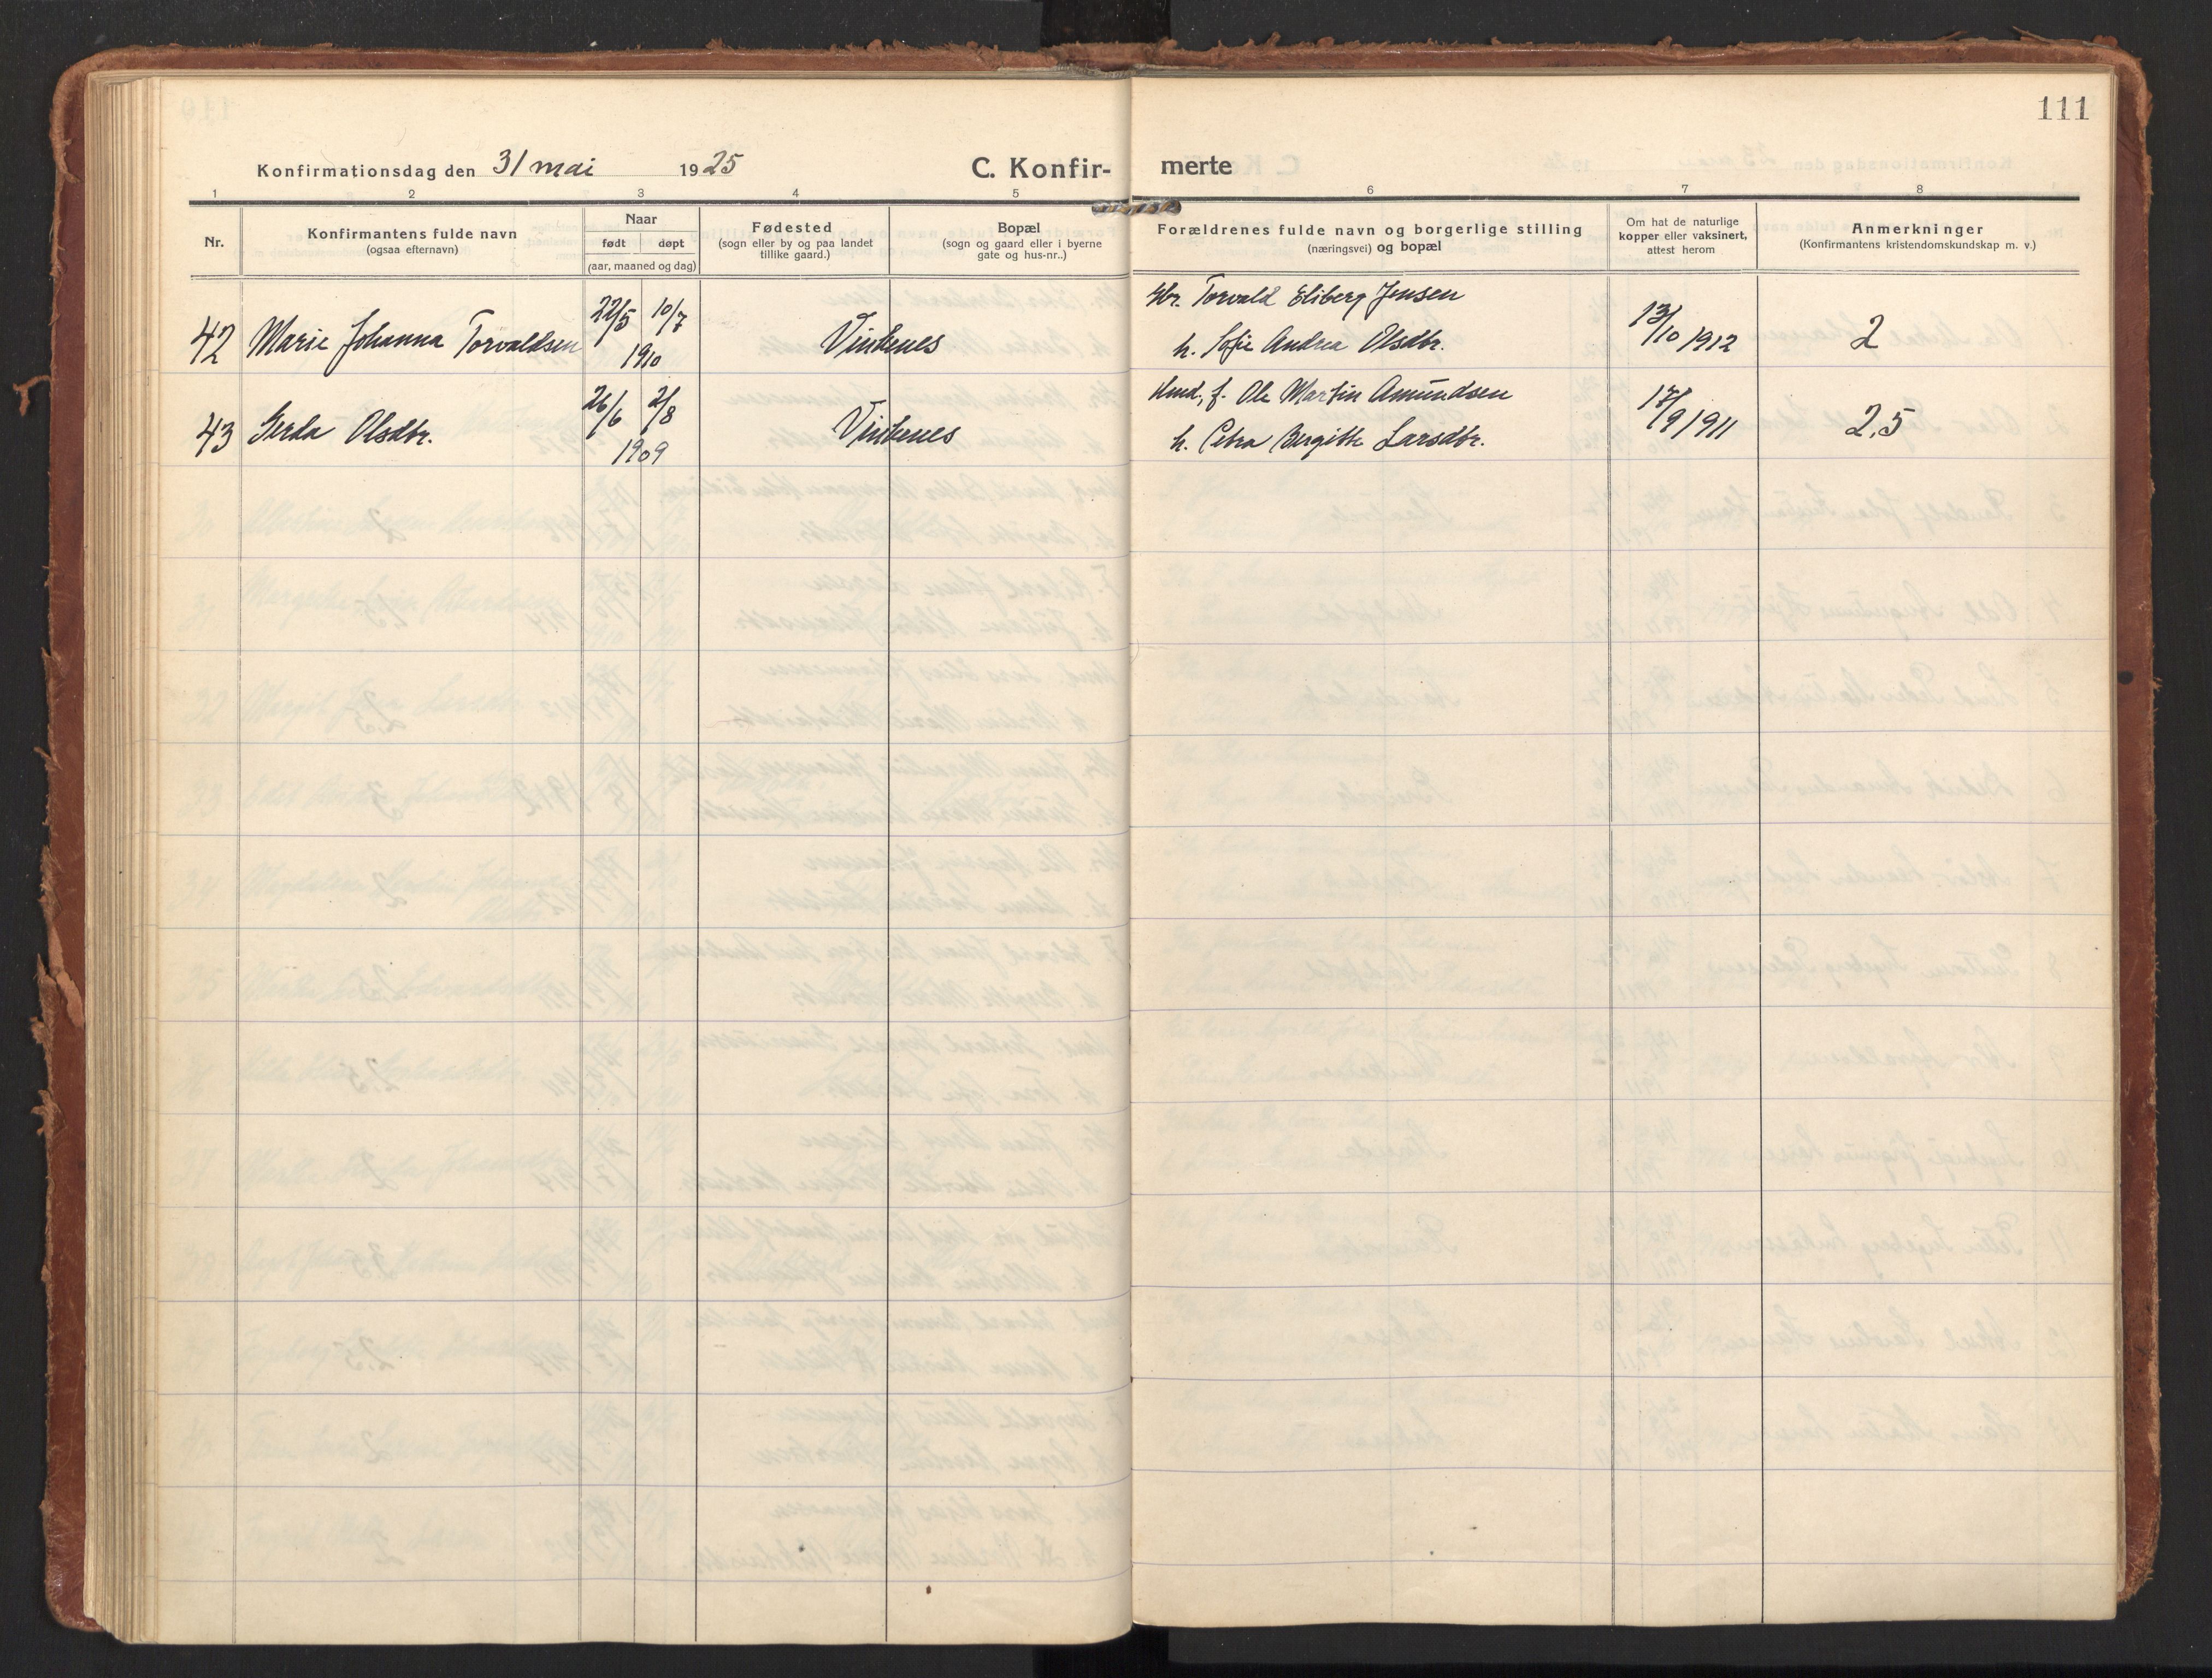 111
Konfirmationsdag den 31 mai 1925 C. Konfir- merte
1 2 3 4 5 6 7 8
Nr.
Konfirmantens fulde navn
(ogsaa efternavn)
Naar
født døpt
(aar, maaned og dag)
Fødested
(sogn eller by og paa landet
tillike gaard.)
Bopæl
(sogn og gaard eller i byerne
gate og hus-nr..)
Forældrenes fulde navn og borgerlige stilling
(næringsvei) og bopæl
Om hat de naturlige
kopper eller vaksinert,
attest herom
Anmerkninger
(Konfirmantens kristendomskundskap m. v.)
42 Marie Johanna Torvaldsen
22/5 10/7
1910
Vinkenes
Torvald Eliberg Jensen
h. Sofie Andrea Olsdtr.
13/10 1912
2
43 Gerda Olsdtr.
26/6 2/8
1909
Vinkenes
f. Ole Martin Amundsen
h. Petra Bergitte Larsdtr.
17/9 1911
2,5